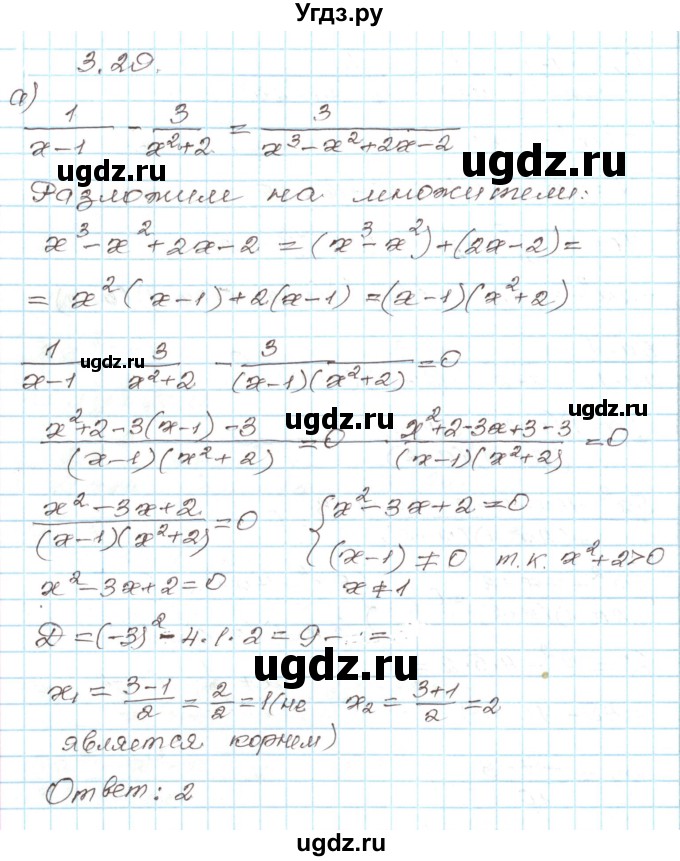 Угдз.ру
3.20.
а)
1/(x-1) - 3/(x²+2) = 3/(x³-x²+2x-2)
ugdz.ru ugdz.ru
Разложим на множители:
x³-x²+2x-2 = (x³-x²)+(2x-2)=
= x²(x-1)+2(x-1)=(x-1)(x²+2)
1/(x-1) ugdz.ru 3/(x²+2) - 3/((x-1)(x²+2)) = 0
ugdz.ru ugdz.ru
(x²+2-3(x-1)-3)/((x-1)(x²+2)) = 0 (x²+2-3x+3-3)/((x-1)(x²+2)) = 0
(x²-3x+2)/((x-1)(x²+2)) = 0 { x²-3x+2=0
(x-1)≠0 т.к. x²+2>0
x²-3x+2=0 x≠1
Д=(-3)²-4·1·2=9- =
ugdz.ru
x₁=(3-1)/2=2/2=1(не x₂=(3+1)/2=2
является корнем)
Ответ: 2
ugdz.ru